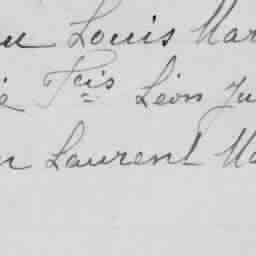 u Louis Mar
é Fcis Léon Ju
u Laurent Ma